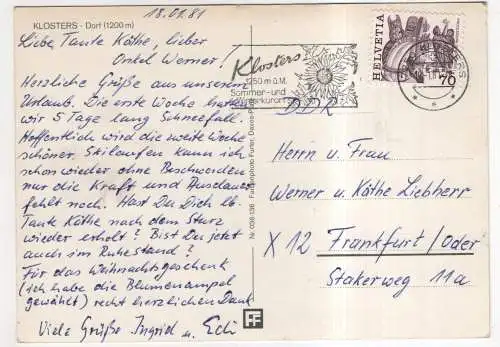 18.01.81
KLOSTERS - Dorf (1200 m)
Liebe Tante Käthe, lieber
Onkel Werner!
Herzliche Grüße aus unserem
Urlaub. Die erste Woche hatten
wir 5 Tage lang Schneefall.
Hoffentlich wird die zweite Woche
schöner. Skilaufen kann ich
schon wieder ohne Beschwerden
nur die Kraft und Ausdauer
fehlt noch. Hast Du Dich lb.
Tante Käthe nach dem Sturz
wieder erholt? Bist Du jetzt
auch im Ruhestand?
Für das Weihnachtsgeschenk
(ich habe die Blumenampel
gewählt) recht herzlichen Dank
Viele Grüße Ingrid u. Edi
Nr. 038/136
Klosters
1250 m ü.M.
Sommer- und
Winterkurort
HELVETIA
70
KLOSTERS
DDR
Herrn u. Frau
Werner u. Käthe Liebherr
X 12 Frankfurt/Oder
Stakerweg 11a